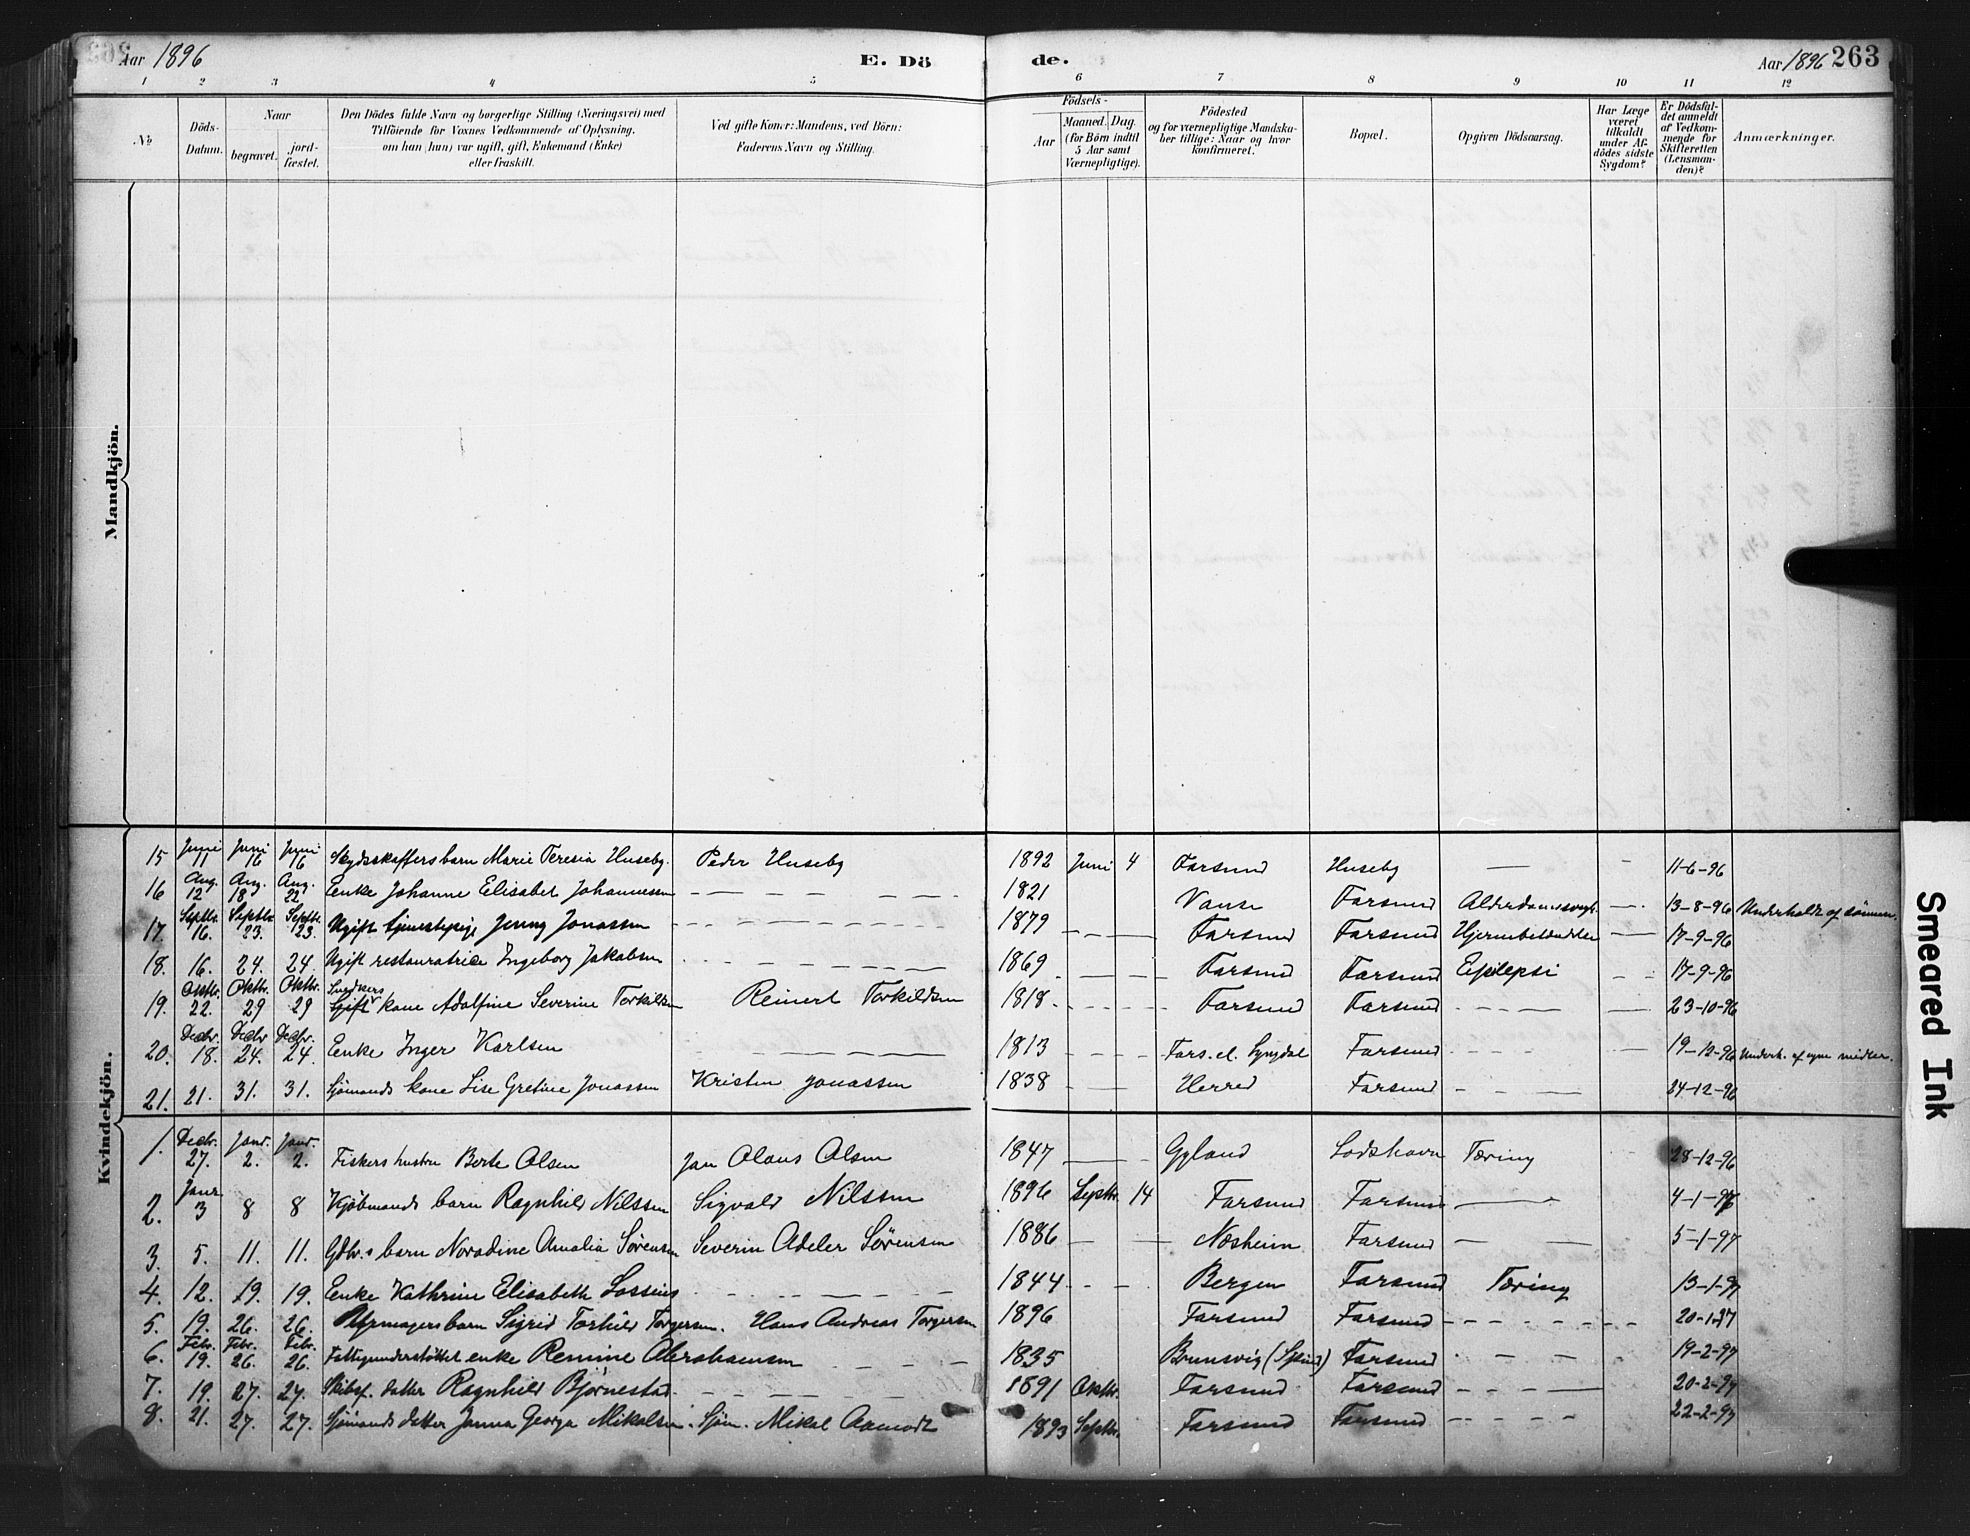 Aar 1896
E. Dö
de.
Aar 1896 263
1 2 3 4 5 6 7 8 9 10 11 12
No
Döds-Datum.
Naar
begravet.
jord-fæstet.
Den Dödes fulde Navn og borgerlige Stilling (Næringsvei) med
Tilföiende for Voxnes Vedkommende af Oplysning,
om han (hun) var ugift, gift, Enkemand (Enke)
eller fraskilt.
Ved gifte Koner: Mandens, ved Börn:
Faderens Navn og Stilling.
Födsels-
Aar
Maaned. Dag.
(for Börn indtil
5 Aar samt
Værnepligtige).
Födested
og for værnepligtige Mandska-
ber tillige: Naar og hvor
konfirmeret.
Bopæl.
Opgiven Dödsaarsag.
Har Læge
været
tilkaldt
under Af-
dödes sidste
Sygdom?
Er Dödsfal-
det anmeldt
af Vedkom-
mende for
Skifteretten
(Lensman-
den)?
Anmærkninger.
Mandkjön.
Kvindekjön.
15 Juni 11 Juni 16 Juni 16 Skydsskaffers barn Marie Teresia Huseby. Peder Huseby 1892 Juni 4 Farsund Huseby — - 11-6-96
16 Aug. 12 Aug. 18 Aug. 22 Enke Johanne Elisabet Johannessen — — 1821 Vanse Farsund 13-8-96 Underholdt af sønnen.
17. Septbr. 16. Septbr. 23. Septbr. 23. Ugift tjenestepige Jenny Jonassen 1879 Farsund Farsund 17-9-96
18. 16. 24. 24. Ugift restauratrice Ingeborg Jakobsen 1869 Farsund Farsund Epilepsi 17-9-96
19. Oktbr. 22. Oktbr. 29 Oktbr. 29 Snedkers Gift kone Adolfine Severine Torkildsen Reinert Torkildsen 1818. Farsund Farsund 23-10-96
20. Decbr. 18. Decbr. 24. Decbr. 24. Enke Inger Karlsen 1813 Fars. el. Lyngdal Farsund 19-12-96 Underh. af egne midler.
21. 21. 31. 31. Sjömands kone Lise Gretine Jonassen Kristen Jonassen 1838 Herred Farsund 24-12-96
1. Decbr. 27. Janr. 2. Janr. 2. Fiskers hustru Berte Olsen Jan Olaus Olsen 1847 Gyland Lodshavn Tæring 28-12-96
2. Janr. 3 8 8 Kjöbmands barn Ragnhild Nilssen Sigvald Nilssen 1896 Septbr. 14 Farsund Farsund 4-1-97
3. 5. 11. 11. Gdbr.s barn Noradine Amalia Sørensen Severin Adeler Sørensen 1886 Næsheim Farsund 5-1-97
4. 12. 19. 19. Enke Kathrine Elisabeth Lossius 1844 Bergen Farsund Tæring 13-1-97
5. 19. 26. 26. Sigrid Torhild Torgersen. Hans Andreas Torgersen 1896 Farsund Farsund 20-1-97
6. Febr. 19. Febr. 26. Febr. 26. Fattigunderstöttet enke Remine Abrahamsen 1835 Brunsvig (Spind) Farsund 19-2-97
7. 19. 27. 27. Skibsf. datter Ragnhild Bjørnestad 1891 Oktbr. Farsund Farsund 20-2-97
8. 21. 27. 27. Sjömands datter Janna Georga Mikalsen. Sjöm. Mikal Aamodt 1893 Septbr. Farsund Farsund 22-2-97
Smeared Ink